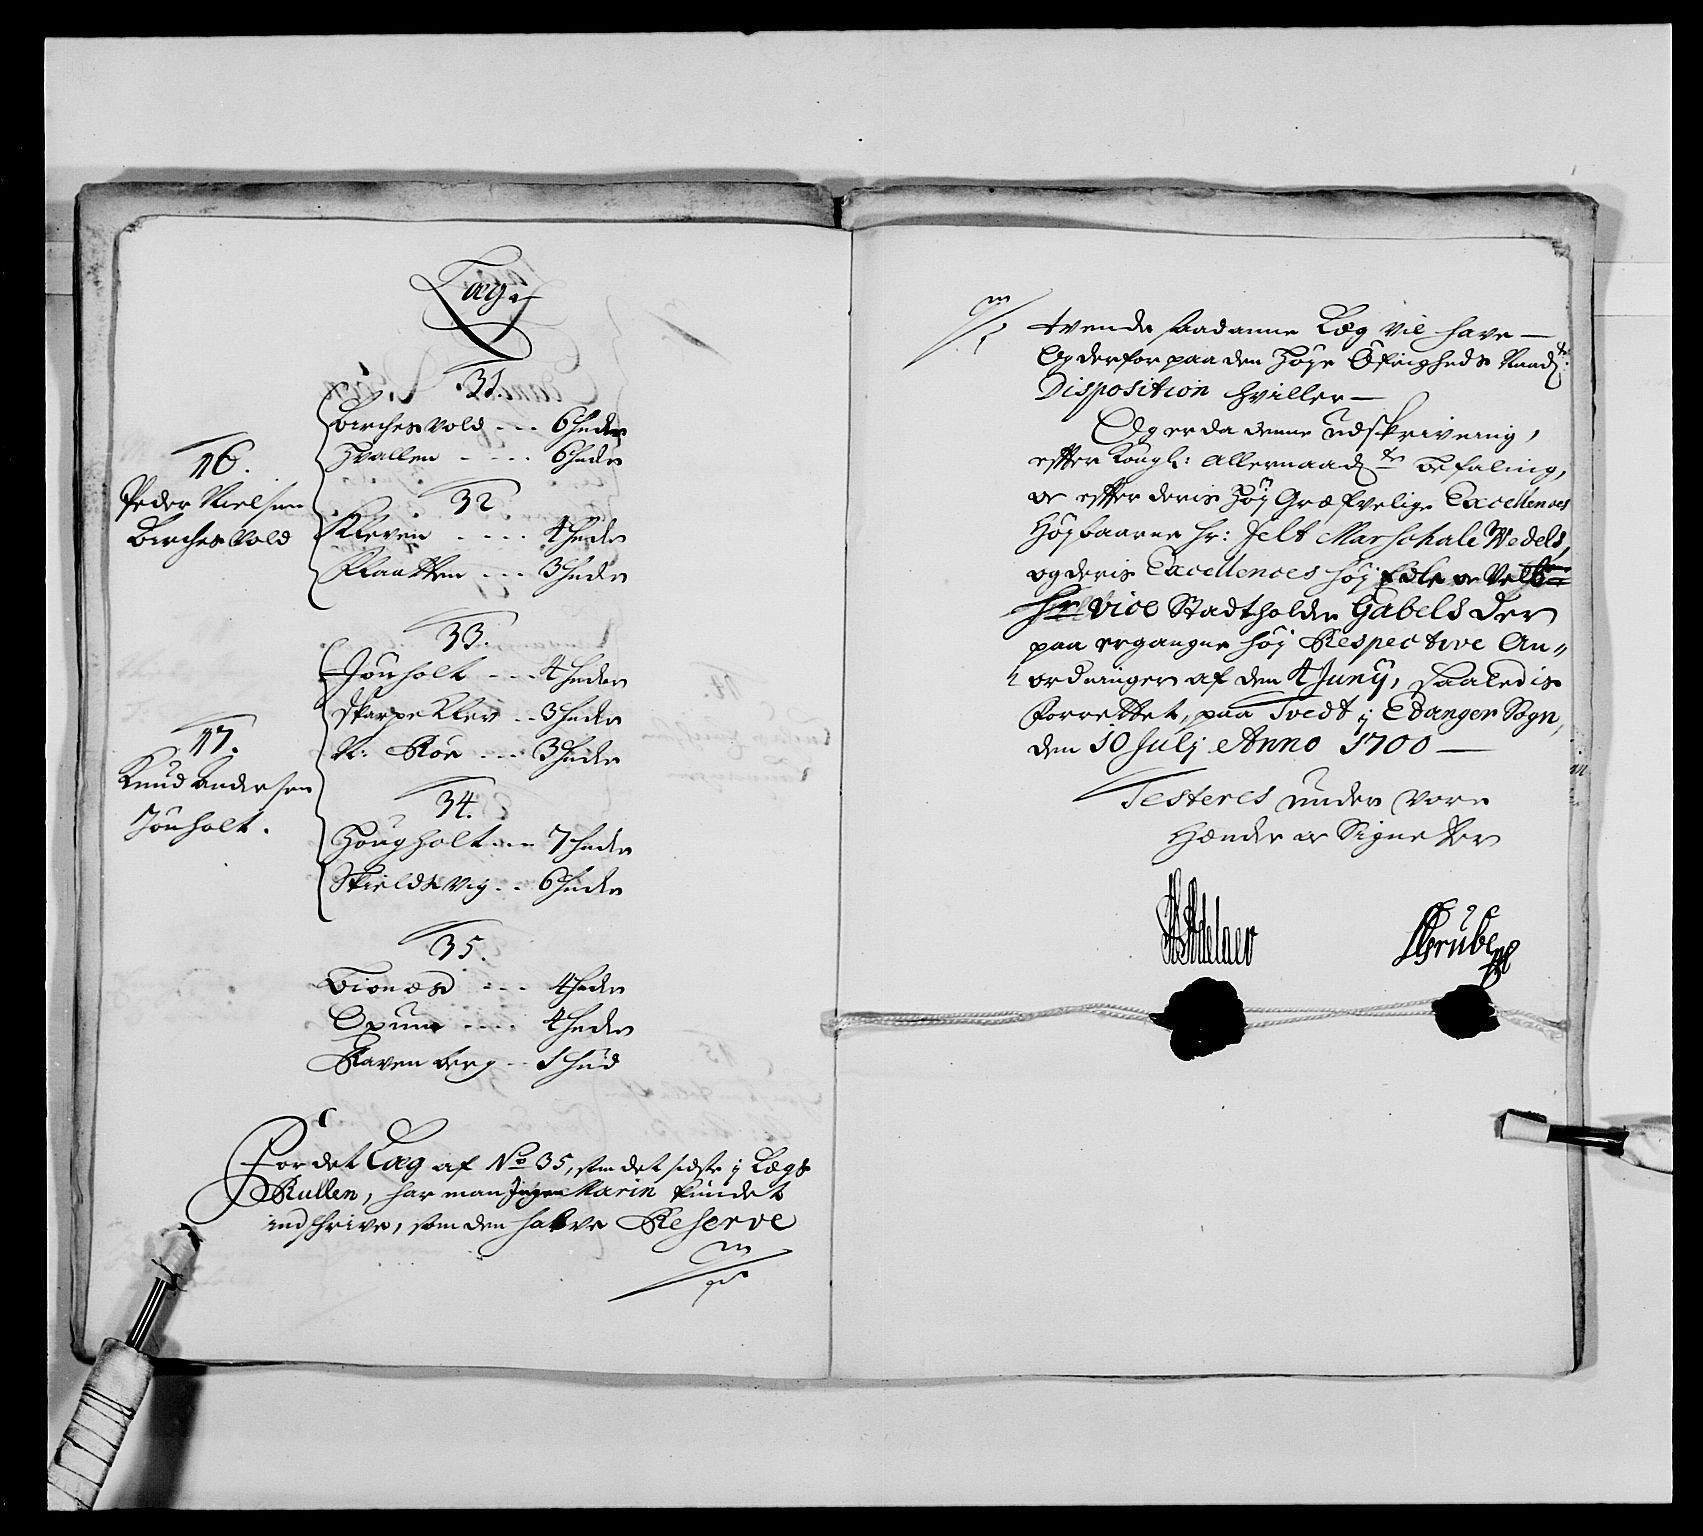 Læg
31.
Birchesvold --- 6 huder
Hvallen ---- 6 huder
16.
Peder Nielsen
Birchesvold
32
Kleven ---- 4 huder
Flaatten --- 3 huder
33.
Jonholt --- 4 huder
Skarpeklev -- 3 huder
N: Röe --- 3 huder
17.
Knud Andersen
Jonholt.
34.
Hougholt --- 7 huder
Skieldsvig -- 6 huder
35.
Bionæs --- 4 huder
Oxum ---- 4 huder
Ravenberg -- 1 hud
For det Læg af No 35, som det sidste i Lægs
Rullen, har man Ingen Marin kundet
indskrive, som den halve Reserve
tvende saadanne Læg vil have —
Og derfor paa den Höye Öfrigheds Naadte:
Disposition hviller —
Og er da denne Udskrivning,
efter Kongl: Allernaadte Befaling,
oc efter deris Höy Græfvelige Excellences
Höybaarne Hr: Felt Marschal Wedels,
og deris Excellences Höy Edle oc Velb:ne
Hr Vice Stadtholder Gabels Der
paa ergangne höy Respective An„
ordninger af den 4 Junij, saaledis
forrettet, paa Tvedt i Edanger Sogn,
den 10 Julj Anno 1700 —
Testeres under vore
Hænder oc Signetter
Adelaer
Grube